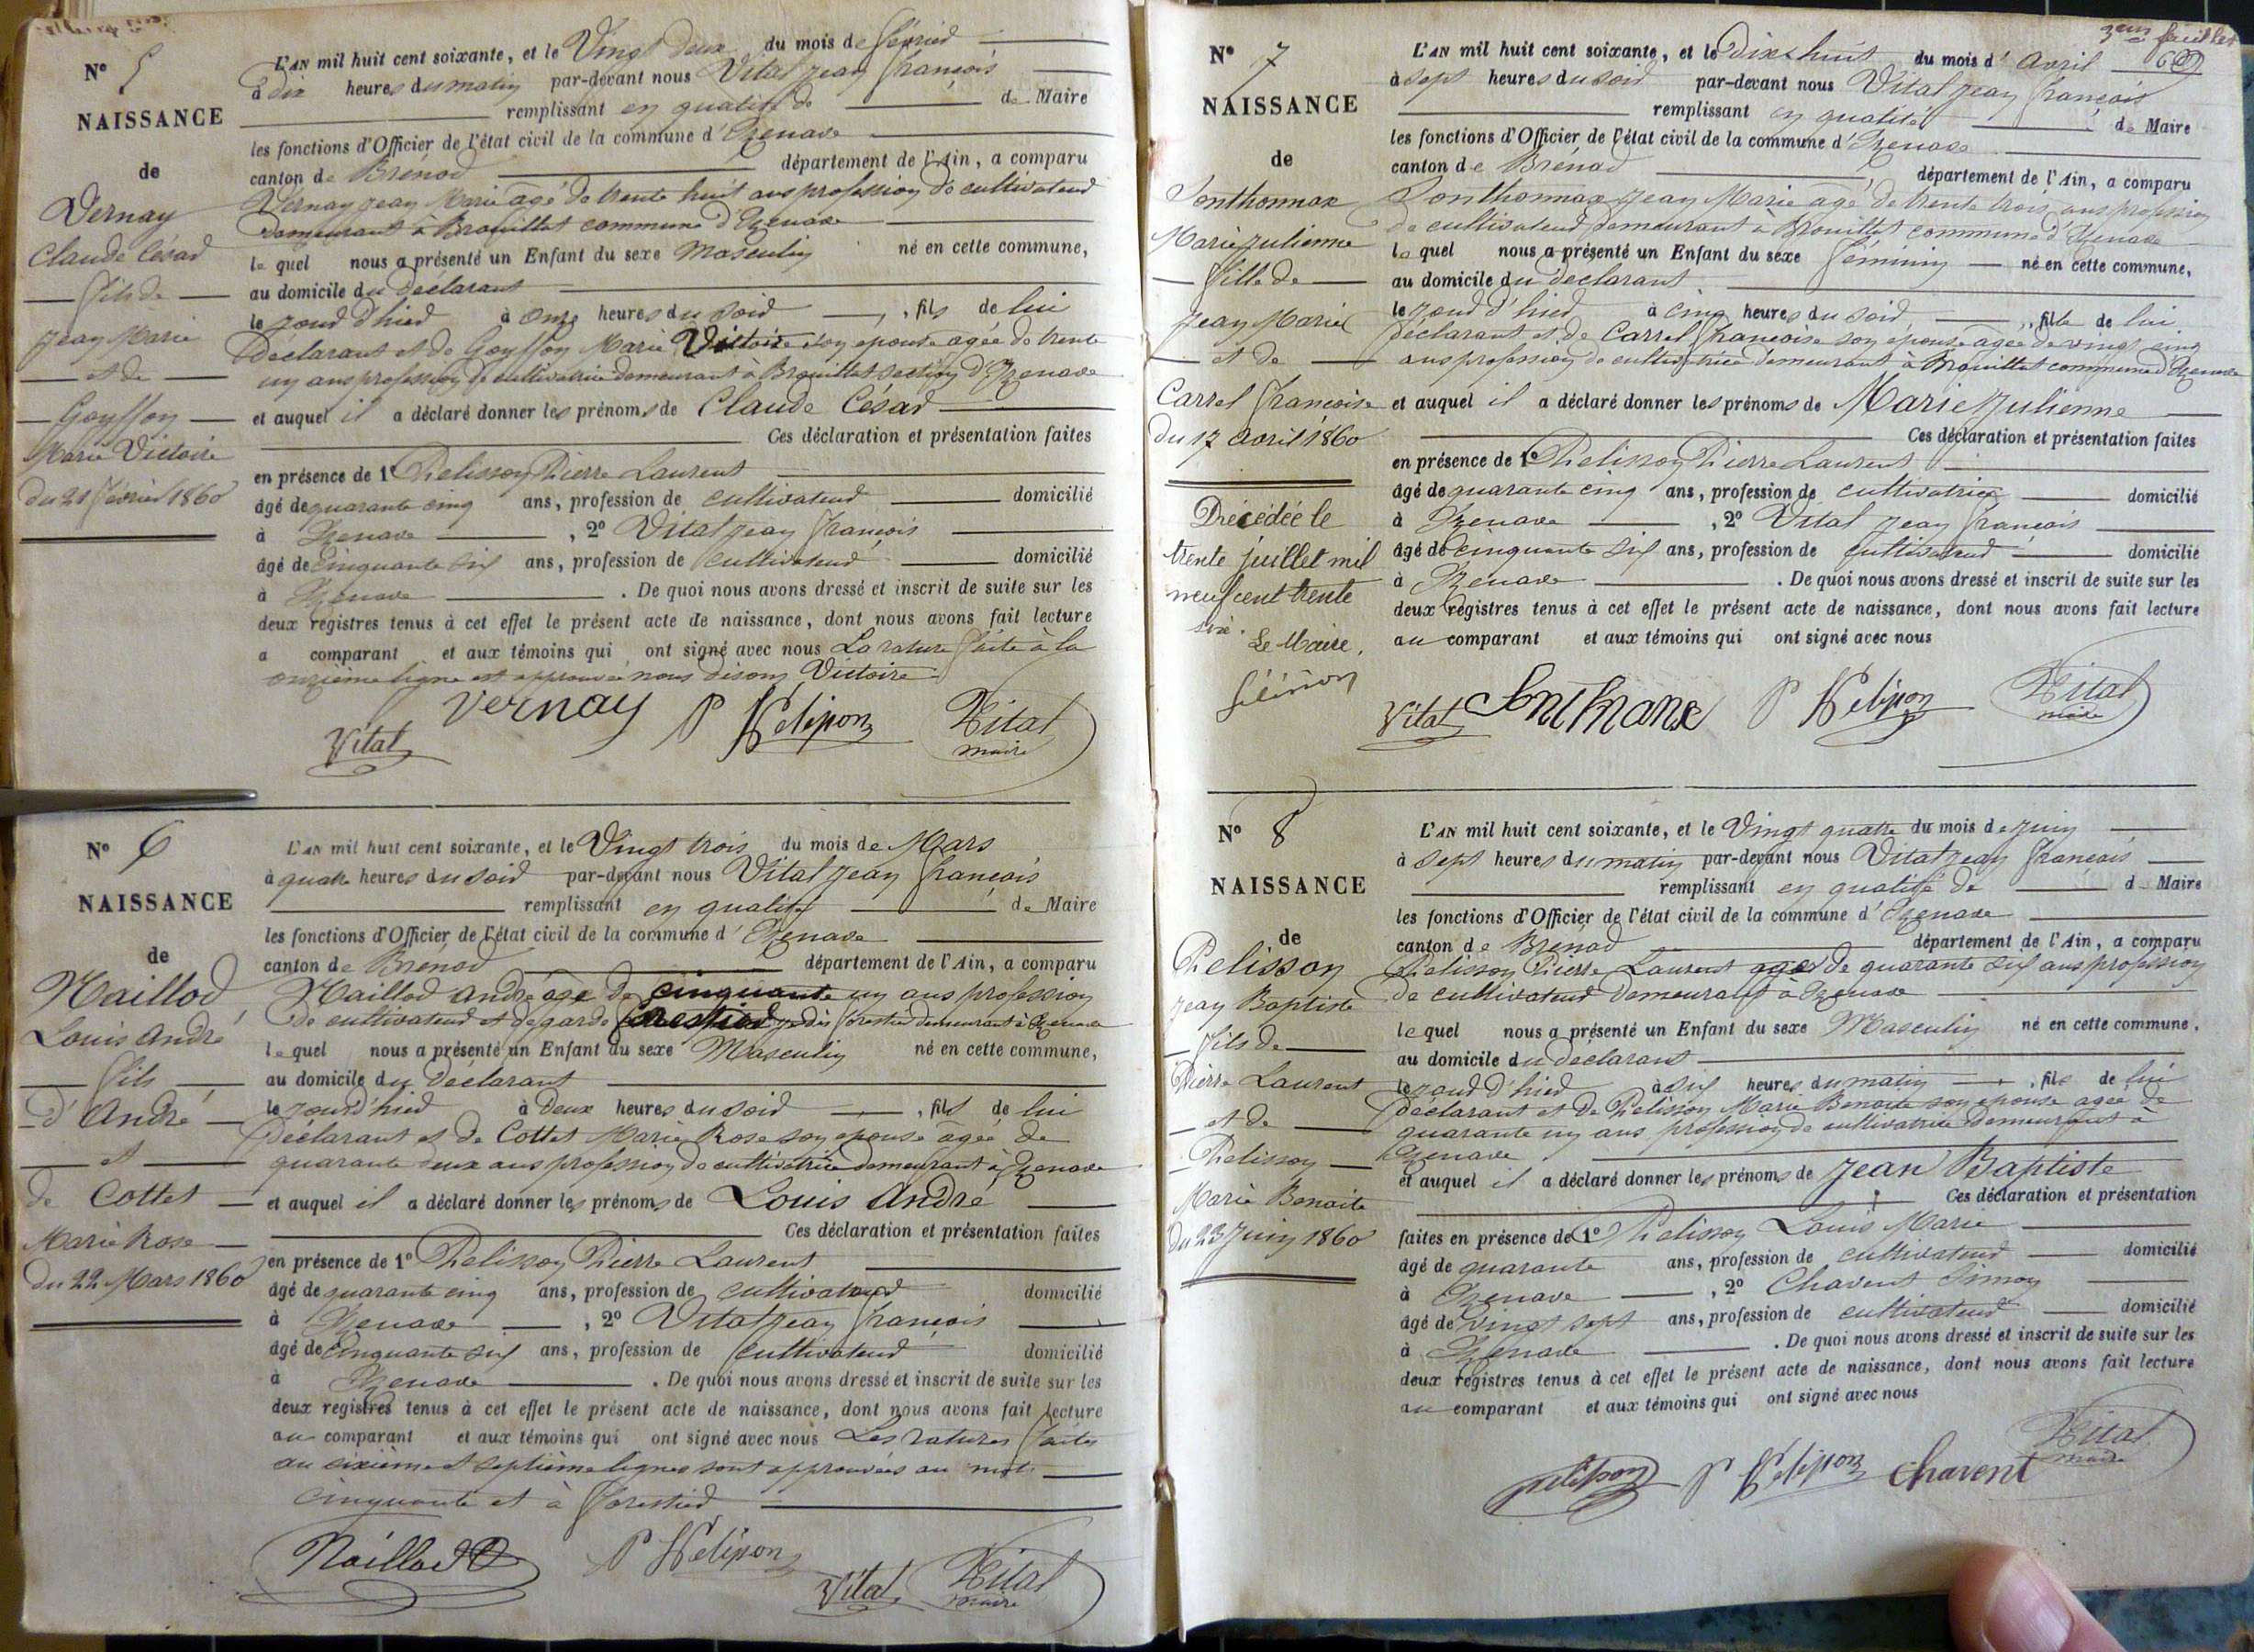 N° 5
NAISSANCE
de
Vernay
Claude César
fils de
Jean Marie
et de
Goyffon
Marie Victoire
du 21 février 1860
L'AN mil huit cent soixante, et le Vingt deux du mois de février
à dix heures du matin par-devant nous Vital Jean François
remplissant en qualité de de Maire
les fonctions d'Officier de l'état civil de la commune d'Izenave
canton de Brénod département de l'Ain, a comparu
Vernay Jean Marie agé de trente huit ans profession de cultivateur
demeurant à Brouillat commune d'Izenave
lequel nous a présenté un Enfant du sexe Masculin né en cette commune,
au domicile du déclarant
le jour d'hier à onze heures du soir , fils de lui
déclarant et de Goyffon Marie Victoire son epouse agée de trente
un ans profession de cultivatrice demeurant à Brouillat section d'Izenave
et auquel il a déclaré donner les prénoms de Claude César
Ces déclaration et présentation faites
en présence de 1° Pelisson Pierre Laurent
âgé de quarante cinq ans, profession de cultivateur domicilié
à Izenave , 2° Vital Jean François
âgé de Cinquante six ans, profession de cultivateur domicilié
à Izenave . De quoi nous avons dressé et inscrit de suite sur les
deux registres tenus à cet effet le présent acte de naissance, dont nous avons fait lecture
a comparant et aux témoins qui ont signé avec nous La rature faite à la
onzième ligne est approuvée nous disons Victoire
Vernay P Pelipon Vital
Vital maire
N° 6
NAISSANCE
de
Maillod
Louis André
fils
d'André
et
de Cottet
Marie Rose
du 22 Mars 1860
L'AN mil huit cent soixante, et le Vingt trois du mois de Mars
à quatre heures du soir par-devant nous Vital Jean François
remplissant en qualité de Maire
les fonctions d'Officier de l'état civil de la commune d'Izenave
canton de Brénod département de l'Ain, a comparu
Maillod André agé de cinquante un ans profession
de cultivateur et de garde forestier je dis forestier demeurant à Izenave
lequel nous a présenté un Enfant du sexe Masculin né en cette commune,
au domicile du déclarant
le jour d'hier à deux heures du soir , fils de lui
déclarant et de Cottet Marie Rose son epouse agée de
quarante deux ans profession de cultivatrice demeurant à Izenave
et auquel il a déclaré donner les prénoms de Louis André
Ces déclaration et présentation faites
en présence de 1° Pelisson Pierre Laurent
âgé de quarante cinq ans, profession de cultivateur domicilié
à Izenave , 2° Vital Jean François
âgé de Cinquante six ans, profession de cultivateur domicilié
à Izenave . De quoi nous avons dressé et inscrit de suite sur les
deux registres tenus à cet effet le présent acte de naissance, dont nous avons fait lecture
au comparant et aux témoins qui ont signé avec nous Les ratures faites
au sixième et septième lignes sont approuvées au mot
cinquante et à forestier
Maillod P Pelipon
Vital Vital
maire
N° 7
NAISSANCE
de
Sonthonnax
Marie Julienne
fille de
Jean Marie
et de
Carrel françoise
du 17 avril 1860
Décédée le
trente juillet mil
neuf cent trente
six.
Le Maire,
L'AN mil huit cent soixante, et le Dix huit du mois d'avril
à sept heures du soir par-devant nous Vital Jean François
remplissant en qualité de Maire
les fonctions d'Officier de l'état civil de la commune d'Izenave
canton de Brénod département de l'Ain, a comparu
Sonthonnax Jean Marie agé de trente trois ans profession
de cultivateur demeurant à Brouillat commune d'Izenave
lequel nous a présenté un Enfant du sexe féminin né en cette commune,
au domicile du déclarant
le jour d'hier à cinq heures du soir , fille de lui
déclarant et de Carrel françoise son épouse agée de vingt cinq
ans profession de cultivatrice demeurant à Brouillat commune d'Izenave
et auquel il a déclaré donner les prénoms de Marie Julienne
Ces déclaration et présentation faites
en présence de 1° Pelisson Pierre Laurent
âgé de quarante cinq ans, profession de cultivatrice domicilié
à Izenave , 2° Vital Jean François
âgé de cinquante six ans, profession de cultivateur domicilié
à Izenave . De quoi nous avons dressé et inscrit de suite sur les
deux registres tenus à cet effet le présent acte de naissance, dont nous avons fait lecture
au comparant et aux témoins qui ont signé avec nous
Vital P Pelipon Vital
maire
N° 8
NAISSANCE
de
Pelisson
Jean Baptiste
fils de
Pierre Laurent
et de
Pelisson
Marie Benoite
du 23 Juin 1860
L'AN mil huit cent soixante, et le Vingt quatre du mois de Juin
à sept heures du matin par-devant nous Vital Jean François
remplissant en qualité de de Maire
les fonctions d'Officier de l'état civil de la commune d'Izenave
canton de Brénod département de l'Ain, a comparu
Pelisson Pierre Laurent agé de quarante six ans profession
de cultivateur demeurant à Izenave
lequel nous a présenté un Enfant du sexe Masculin né en cette commune,
au domicile du déclarant
le jour d'hier à six heures du matin , fils de lui
déclarant et de Pelisson Marie Benoite son epouse agée de
quarante un ans profession de cultivatrice demeurant à
Izenave
et auquel il a déclaré donner les prénoms de Jean Baptiste
Ces déclaration et présentation
faites en présence de 1° Pelisson Louis Marie
âgé de quarante ans, profession de cultivateur domicilié
à Izenave , 2° Chavent Simon
âgé de vingt sept ans, profession de cultivateur domicilié
à Izenave . De quoi nous avons dressé et inscrit de suite sur les
deux registres tenus à cet effet le présent acte de naissance, dont nous avons fait lecture
au comparant et aux témoins qui ont signé avec nous
pelipon P Pelipon chavent Vital
maire